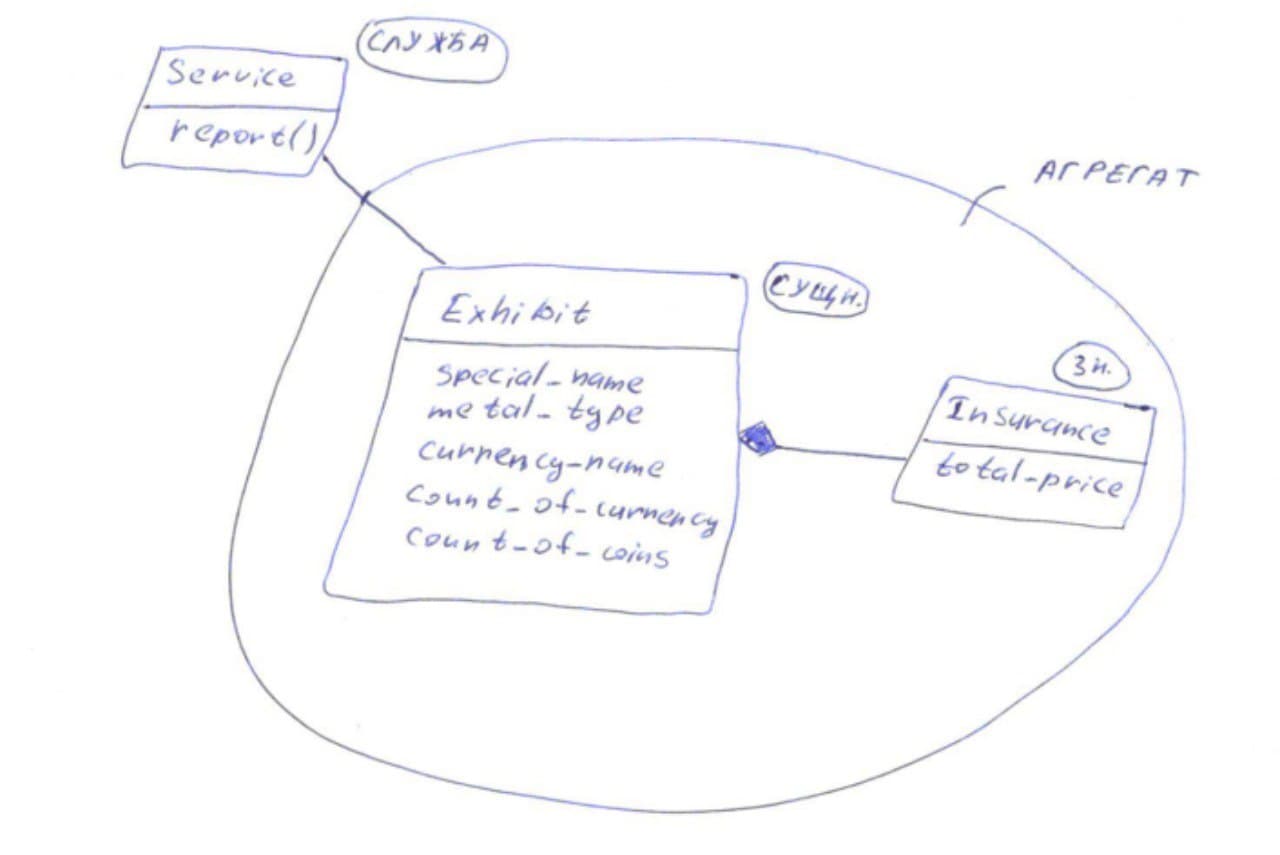 СЛУЖБА
Service
report()
АГРЕГАТ
Exhibit
СУЩН.
special_name
metal_type
currency_name
count_of_currency
count_of_coins
ЗН.
Insurance
total_price